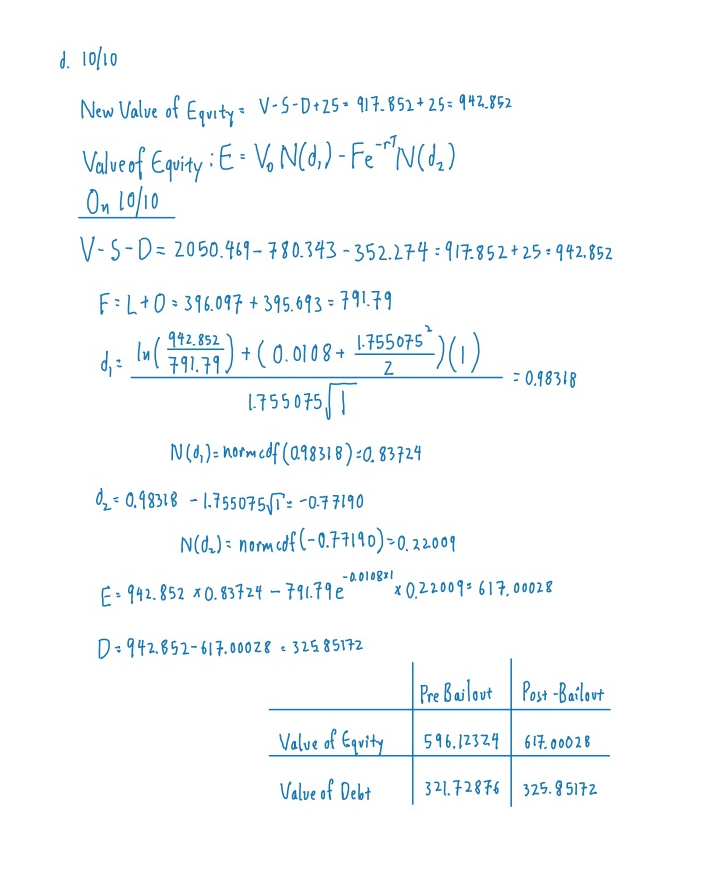 d. 10/10
New Value of Equity = V-S-D+25 = 917.852+25 = 942.852
Value of Equity : E = V₀ N(d₁) - Fe^-rT N(d₂)
On 10/10
V-S-D = 2050.469 - 780.343 - 352.274 = 917.852 + 25 = 942.852
F = L + O = 396.097 + 395.693 = 791.79
d₁ = (ln(942.852/791.79) + (0.0108 + 1.755075²/2)(1)) / (1.755075√1) = 0.98318
N(d₁) = normcdf(0.98318) = 0.83724
d₂ = 0.98318 - 1.755075√1 = -0.77190
N(d₂) = normcdf(-0.77190) = 0.22009
E = 942.852 × 0.83724 - 791.79e^-0.0108×1 × 0.22009 = 617.00028
D = 942.852 - 617.00028 = 325.85172
Pre Bailout Post-Bailout
Value of Equity 596.12324 617.00028
Value of Debt 321.72876 325.85172